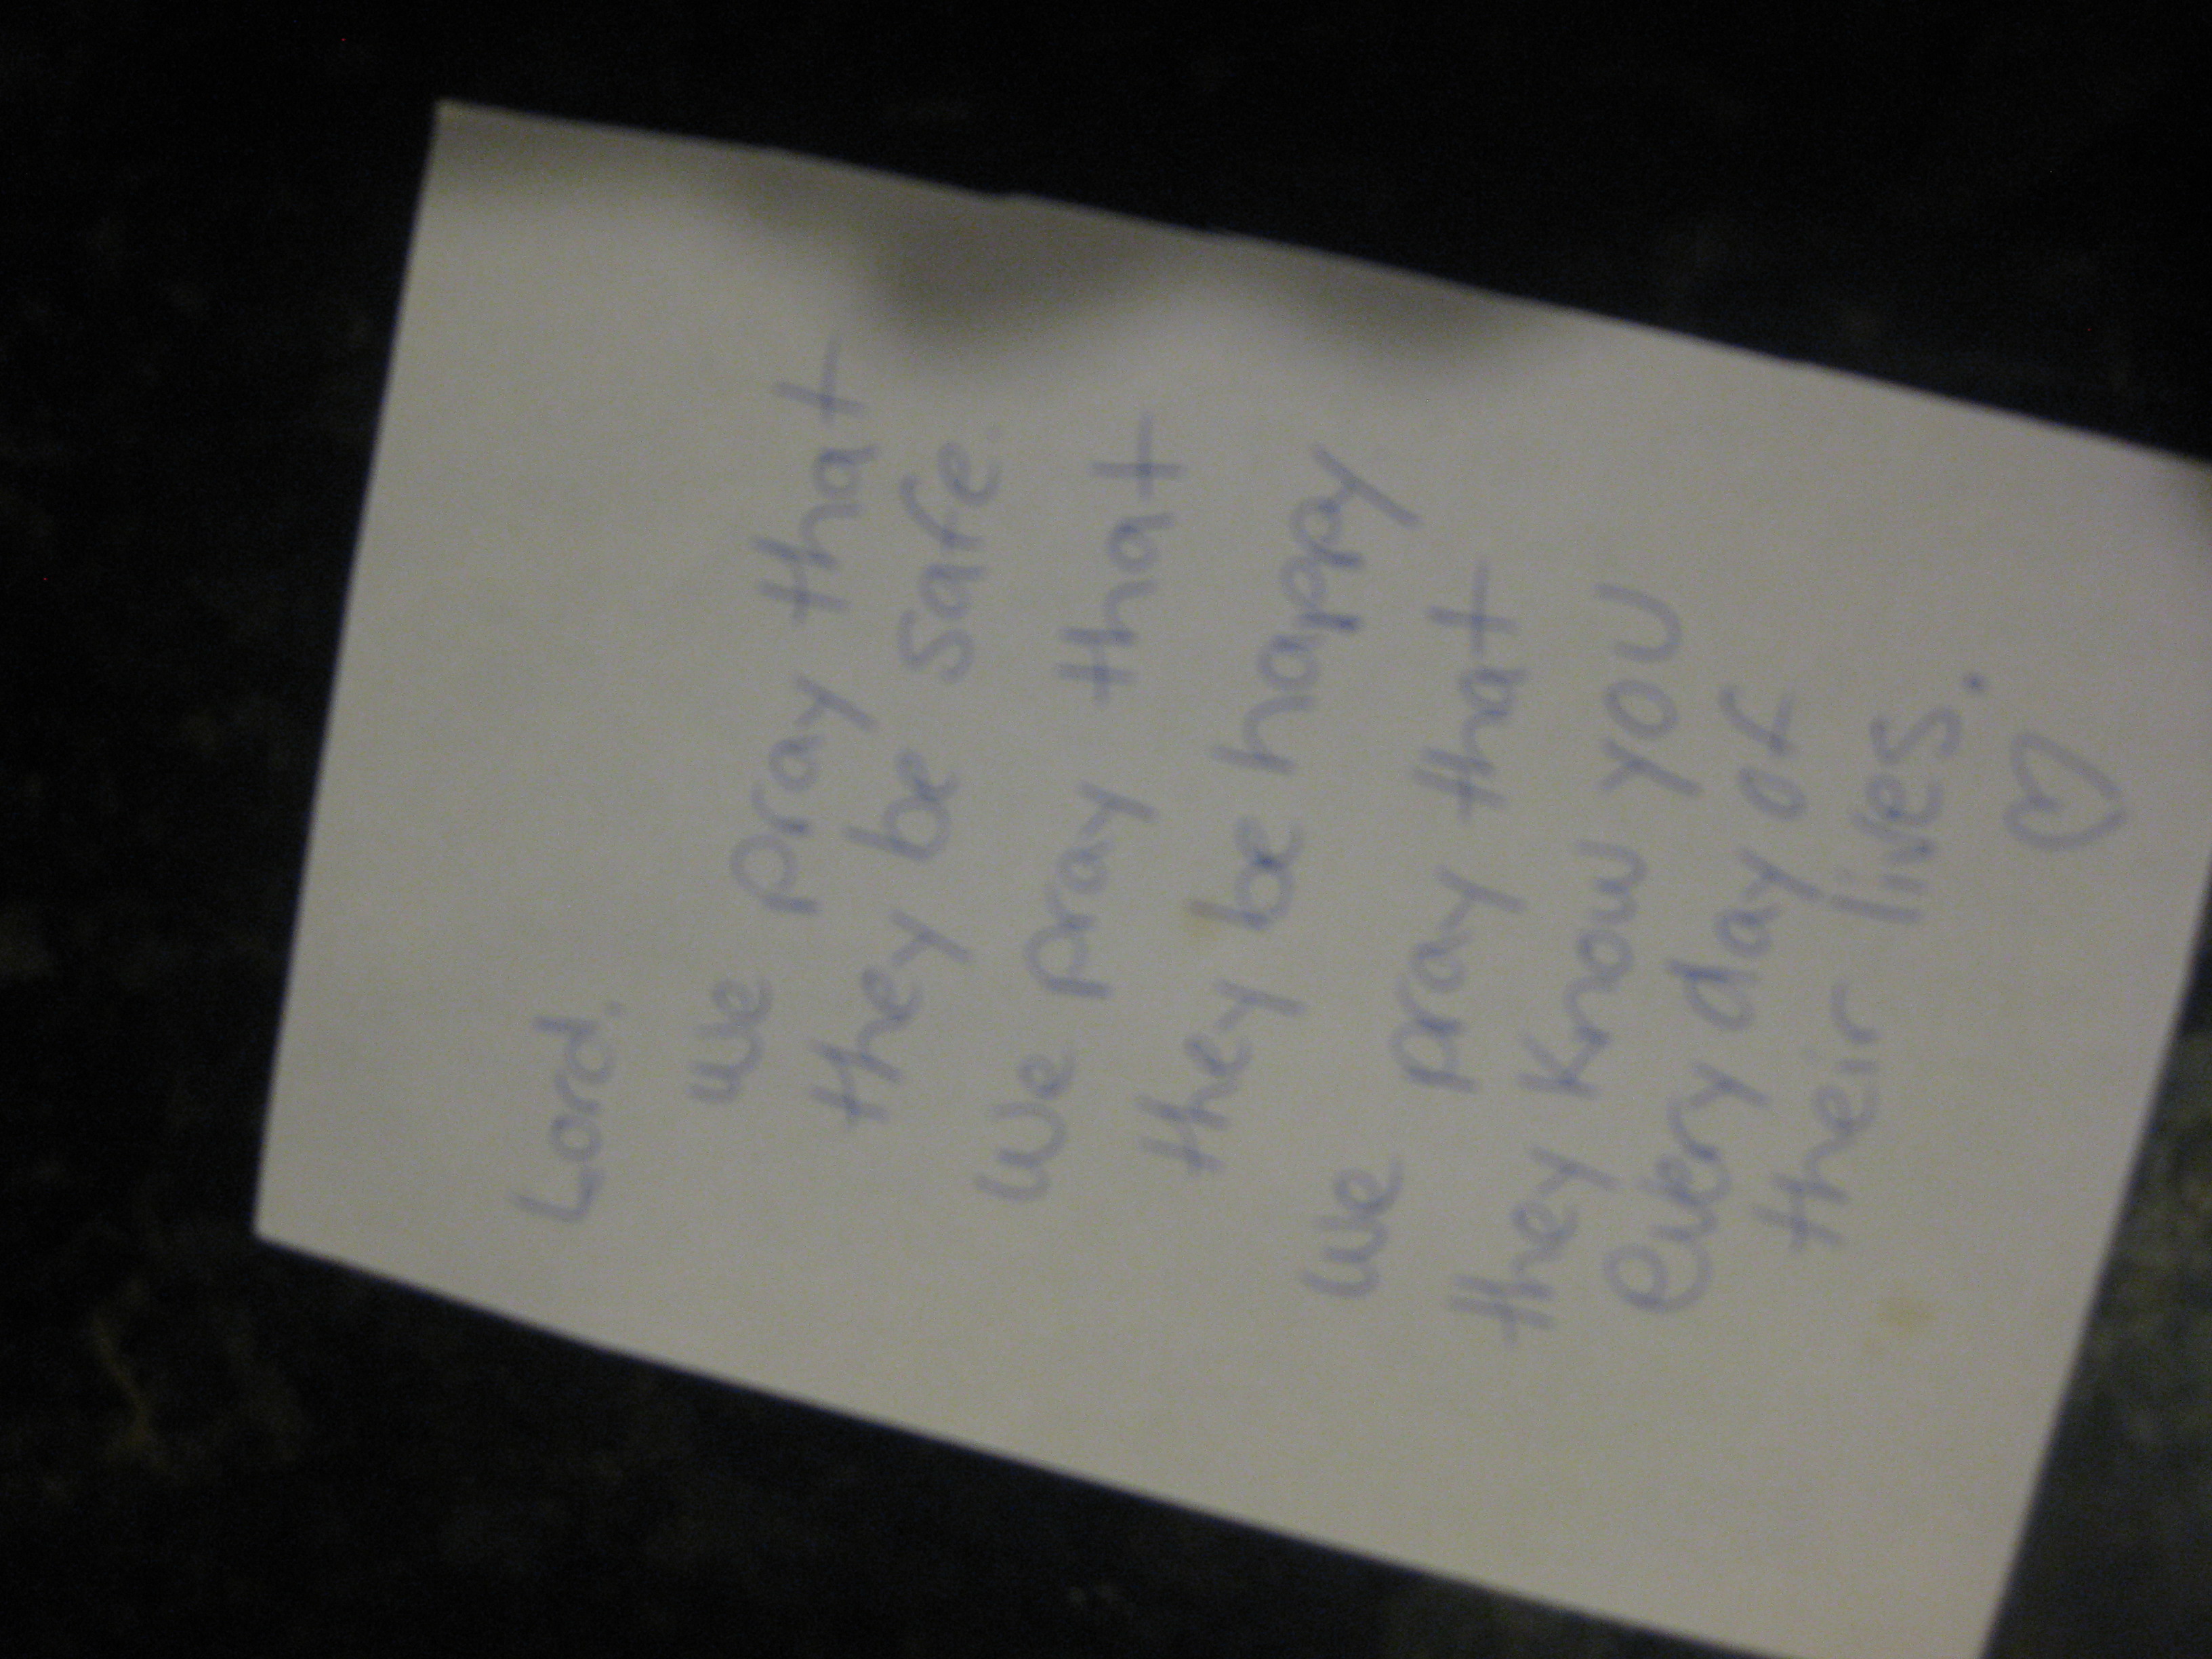 Lord.
we pray that
they be safe.
We pray that
they be happy
we pray that
they know you
every day of
their lives.